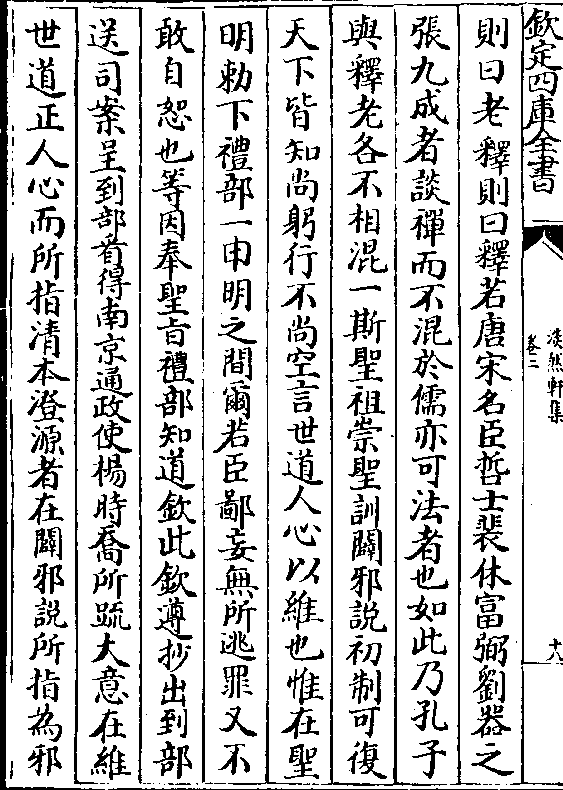 欽定四庫全書
淡然軒集
卷三
十八
則曰老釋則曰釋若唐宋名臣哲士裴休富弼劉器之
張九成者談禪而不混於儒亦可法者也如此乃孔子
與釋老各不相混一斯聖祖崇聖訓闢邪說初制可復
天下皆知尚躬行不尚空言世道人心以維也惟在聖
明勅下禮部一申明之間爾若臣鄙妄無所逃罪又不
敢自恕也等因奉聖旨禮部知道欽此欽遵抄出到部
送司案呈到部看得南京通政使楊時喬所疏大意在維
世道正人心而所指清本澄源者在闢邪說所指為邪